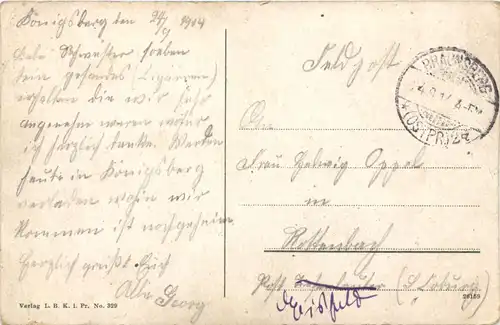 Königsberg den 24/9 1904
Liebe Schwester soeben
dein gesandes (Zigarren)
erhalten die mir sehr
angenehm waren wofür
ich herzlich danke. Werden
heute in Königsberg
verladen wohin wir
kommen ist noch geheim
Herzlich grüßt Euch
Alle Georg
Verlag L. B. K. i. Pr. No. 329
Feldpost
BRAUNSBERG
(OSTPR.)
An
Frau Hedwig Appel
in
Rottenbach
Post (S. Coburg)
Eisfeld
26159